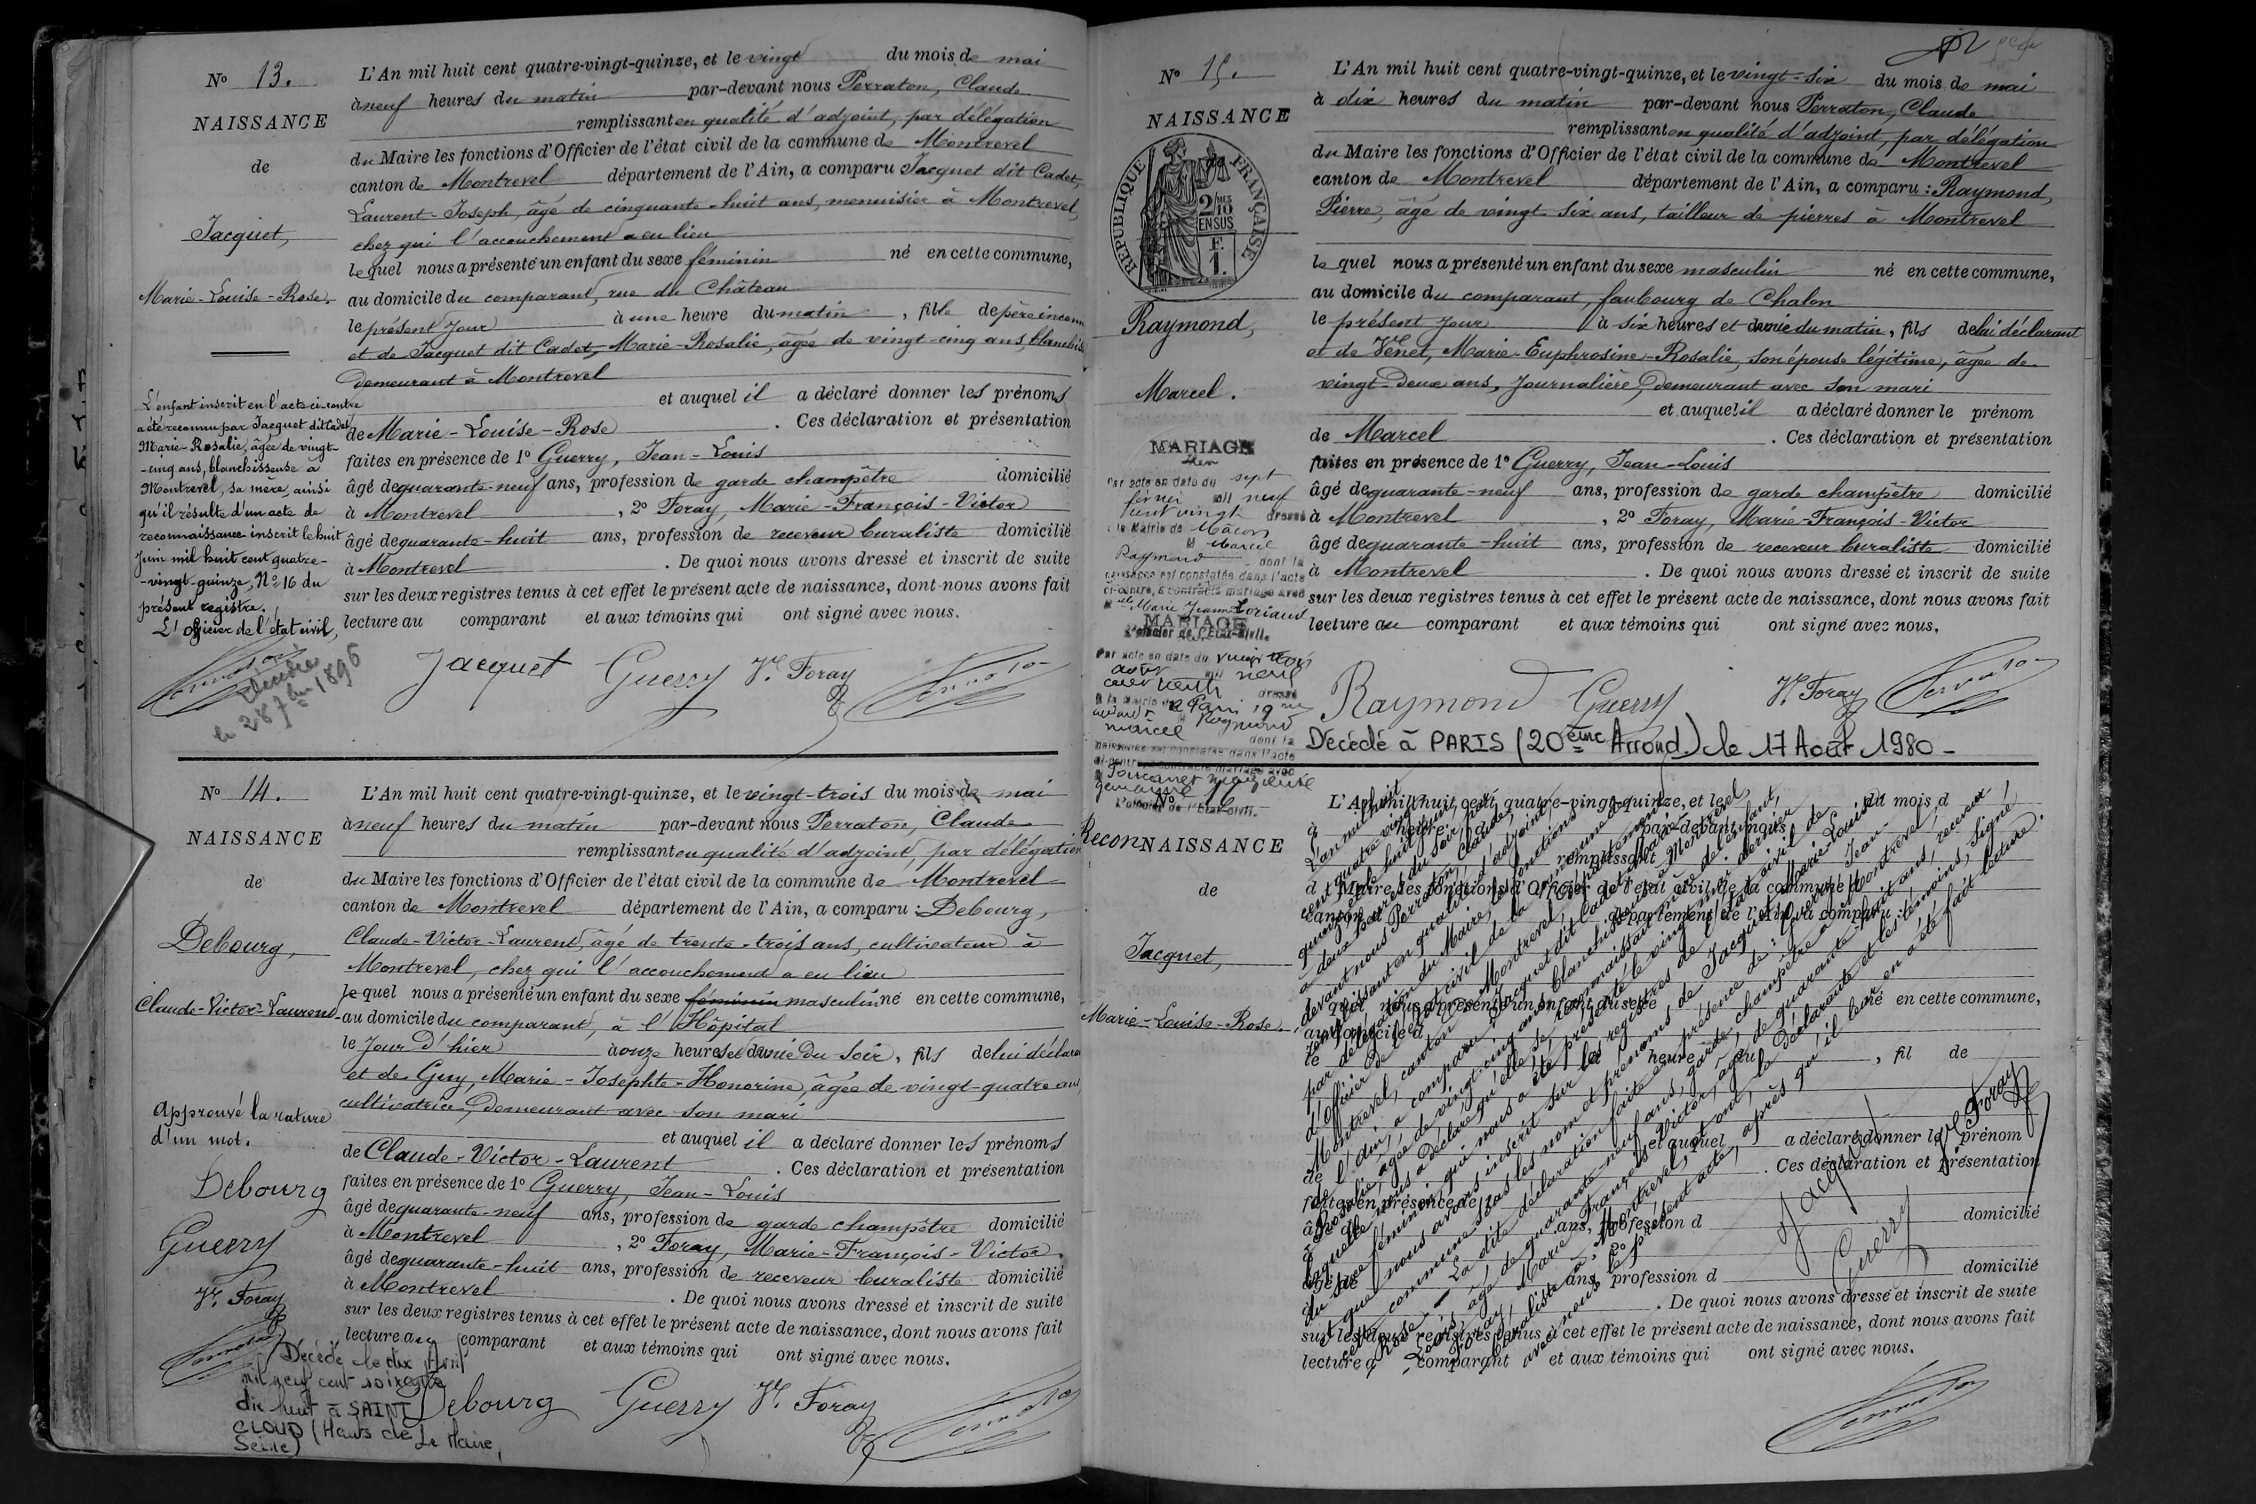 Nº 13.
NAISSANCE
de
Jacquet,
Marie-Louise-Rose.
L'enfant inscrit en l'acte ci-contre
a été reconnu par Jacquet dit Cadet,
Marie-Rosalie, âgée de vingt-
-cinq ans, blanchisseuse à
Montrevel, sa mère, ainsi
qu'il résulte d'un acte de
reconnaissance inscrit le huit
Juin mil huit cent quatre-
-vingt-quinze, Nº 16 du
présent registre.
L'officier de l'état civil,
Décédée
le 28 7bre 1896
L'An mil huit cent quatre-vingt-quinze, et le vingt du mois de mai
à neuf heures du matin par-devant nous Perraton, Claude
remplissant en qualité d'adjoint, par délégation
du Maire les fonctions d'Officier de l'état civil de la commune de Montrevel
canton de Montrevel département de l'Ain, a comparu Jacquet dit Cadet,
Laurent-Joseph, âgé de cinquante-huit ans, menuisier à Montrevel,
chez qui l'accouchement a eu lieu
lequel nous a présenté un enfant du sexe féminin né en cette commune,
au domicile du comparant, rue du Château
le présent jour à une heure du matin, fille de père inconnu
et de Jacquet dit Cadet, Marie-Rosalie, âgée de vingt-cinq ans, blanchis
demeurant à Montrevel
et auquel il a déclaré donner les prénoms
de Marie-Louise-Rose . Ces déclaration et présentation
faites en présence de 1º Guerry, Jean-Louis
âgé de quarante-neuf ans, profession de garde champêtre domicilié
à Montrevel , 2º Foray, Marie-François-Victor
âgé de quarante-huit ans, profession de receveur buraliste domicilié
à Montrevel . De quoi nous avons dressé et inscrit de suite
sur les deux registres tenus à cet effet le présent acte de naissance, dont nous avons fait
lecture au comparant et aux témoins qui ont signé avec nous.
Jacquet Guerry Vr Foray
Nº 14.
NAISSANCE
de
Debourg,
Claude-Victor-Laurent
Approuvé la rature
d'un mot.
Debourg
Guerry
Vr Foray
L'An mil huit cent quatre-vingt-quinze, et le vingt-trois du mois de mai
à neuf heures du matin par-devant nous Perraton, Claude
remplissant en qualité d'adjoint, par délégation
du Maire les fonctions d'Officier de l'état civil de la commune de Montrevel
canton de Montrevel département de l'Ain, a comparu : Debourg,
Claude-Victor-Laurent, âgé de trente-trois ans, cultivateur à
Montrevel, chez qui l'accouchement a eu lieu
lequel nous a présenté un enfant du sexe féminin masculin né en cette commune,
au domicile du comparant, à l'Hôpital
le jour d'hier à onze heures et demie du soir, fils de lui déclara
et de Guy, Marie-Josephte-Honorine, âgée de vingt-quatre ans,
cultivatrice, demeurant avec son mari
et auquel il a déclaré donner les prénoms
de Claude-Victor-Laurent . Ces déclaration et présentation
faites en présence de 1º Guerry, Jean-Louis
âgé de quarante-neuf ans, profession de garde champêtre domicilié
à Montrevel , 2º Foray, Marie-François-Victor
âgé de quarante-huit ans, profession de receveur buraliste domicilié
à Montrevel . De quoi nous avons dressé et inscrit de suite
sur les deux registres tenus à cet effet le présent acte de naissance, dont nous avons fait
lecture au comparant et aux témoins qui ont signé avec nous.
Décédé le dix Avril
mil neuf cent soixante
dix huit à SAINT
CLOUD (Hauts de
Seine) Le Maire,
Debourg Guerry Vr Foray
Nº 15.
NAISSANCE
RÉPUBLIQUE FRANÇAISE
2/10 EN SUS
F. 1.
Raymond,
Marcel.
MARIAGE
Par acte en date du sept
février mil neuf
cent vingt dressé
à la Mairie de Mâcon
M Marcel
Raymond dont la
naissance est constatée dans l'acte
ci-contre, a contracté mariage avec
Mlle Marie Jeanne Loriaud
L'Officier de l'Etat-Civil.
MARIAGE
Par acte en date du vingt trois
août mil neuf
cent trente dressé
à la mairie de Paris 19me
M Raymond
Marcel dont la
naissance est constatée dans l'acte
ci-contre, a contracté mariage avec
Germaine
L'Officier de l'Etat-Civil.
L'An mil huit cent quatre-vingt-quinze, et le vingt-six du mois de mai
à dix heures du matin par-devant nous Perraton, Claude
remplissant en qualité d'adjoint, par délégation
du Maire les fonctions d'Officier de l'état civil de la commune de Montrevel
canton de Montrevel département de l'Ain, a comparu : Raymond,
Pierre, âgé de vingt-six ans, tailleur de pierres à Montrevel
lequel nous a présenté un enfant du sexe masculin né en cette commune,
au domicile du comparant, faubourg de Chalon
le présent jour à six heures et demie du matin, fils de lui déclarant
et de Vénet, Marie-Euphrosine-Rosalie, son épouse légitime, âgée de
vingt-deux ans, journalière, demeurant avec son mari
et auquel il a déclaré donner le prénom
de Marcel . Ces déclaration et présentation
faites en présence de 1º Guerry, Jean-Louis
âgé de quarante-neuf ans, profession de garde champêtre domicilié
à Montrevel , 2º Foray, Marie-François-Victor
âgé de quarante-huit ans, profession de receveur buraliste domicilié
à Montrevel . De quoi nous avons dressé et inscrit de suite
sur les deux registres tenus à cet effet le présent acte de naissance, dont nous avons fait
lecture au comparant et aux témoins qui ont signé avec nous.
Raymond Guerry Vr Foray
Décédé à PARIS (20ème Arrond.) le 17 Août 1980 -
Nº 16.
ReconNAISSANCE
de
Jacquet,
Marie-Louise-Rose.
L'An mil huit cent quatre-vingt-quinze, et le du mois d
à heure par-devant nous
remplissant
d Maire les fonctions d'Officier de l'état civil de la commune d
canton d département de l'Ain, a comparu :
lequel nous a présenté un enfant du sexe né en cette commune,
au domicile d
le heure du , fil de
et auquel a déclaré donner le prénom
. Ces déclaration et présentation
faites en présence de
âgé de ans, profession d domicilié
à 2º
âgé de ans, profession d domicilié
à . De quoi nous avons dressé et inscrit de suite
sur les deux registres tenus à cet effet le présent acte de naissance, dont nous avons fait
lecture a comparant et aux témoins qui ont signé avec nous.
L'an mil huit
cent quatre-vingt-
quinze, et le huit juin,
à deux heures du soir, par
devant nous Perraton, Claude,
remplissant en qualité d'adjoint,
par délégation du Maire, les fonctions
d'Officier de l'état civil de la commune de
Montrevel, canton de Montrevel, département
de l'Ain, a comparu : Jacquet dit Cadet, Marie-
Rosalie, âgée de vingt-cinq ans, blanchisseuse à Montrevel,
laquelle nous a déclaré qu'elle se reconnaissait mère de l'enfant,
du sexe féminin, qui nous a été présenté le vingt mai dernier
et que nous avons inscrit sur les registres de l'état civil de
cette commune sous les nom et prénoms de Jacquet, Marie-Louise-
Rose. - La dite déclaration faite en présence de : Guerry, Jean-
Louis, âgé de quarante-neuf ans, garde champêtre à Montrevel,
Foray, Marie-François-Victor, âgé de quarante-huit ans, receveur
buraliste à Montrevel, et ont, la déclarante et les témoins, signé
avec nous le présent acte, après qu'il leur en a été fait lecture.
Jacquet
Guerry
Vr Foray